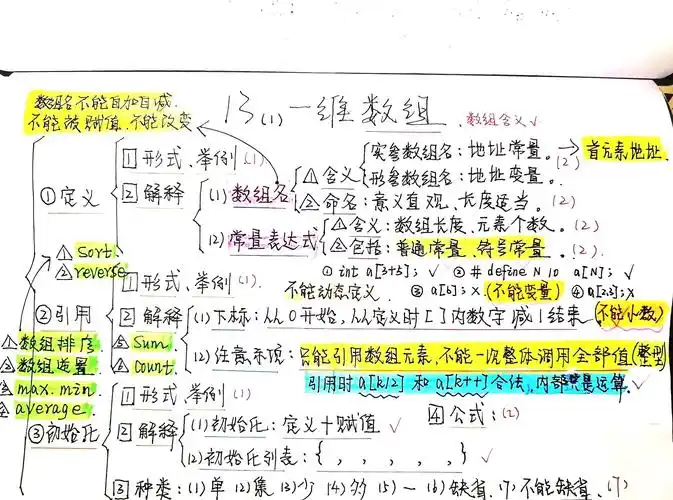 13(1) 一维数组
、数组含义✓
数组名不能自加自减.
不能被赋值.不能改变
①定义
1 形式、举例(1)
2 解释
(1)数组名
△1 含义
实参数组名：地址常量。(2) → 首元素地址.
形参数组名：地址变量。
△2 命名：意义直观、长度适当。(2)
(2)常量表达式
△1 含义：数组长度、元素个数。(2)
△2 包括：普通常量、符号常量。(2)
① int a[3+5]; ✓ ② # define N 10 a[N]; ✓
不能动态定义. ③ a[b]; × (不能变量) ④ a[2.3]; ×
△1 sort.
△2 reverse
②引用
1 形式、举例(1).
2 解释
(1)下标：从0开始，从定义时[ ]内数字减1结束(不能小数)
(2)注意事项：只能引用数组元素，不能一次整体调用全部值(整型)
引用时a[k/2] 和 a[k++]合法，内部是运算. ✓
△1 数组排序
△2 数组逆置
△3 max.min
△4 average.
△1 Sum
△2 count.
③初始化
1 形式、举例(1)
2 解释
(1)初始化：定义+赋值 ✓
(2)初始化列表：{ , , , , } ✓
4 公式：(2)
3 种类：(1)单 (2)集 (3)少 (4)多 (5)一 (6)缺省 (7)不能缺省. (7)